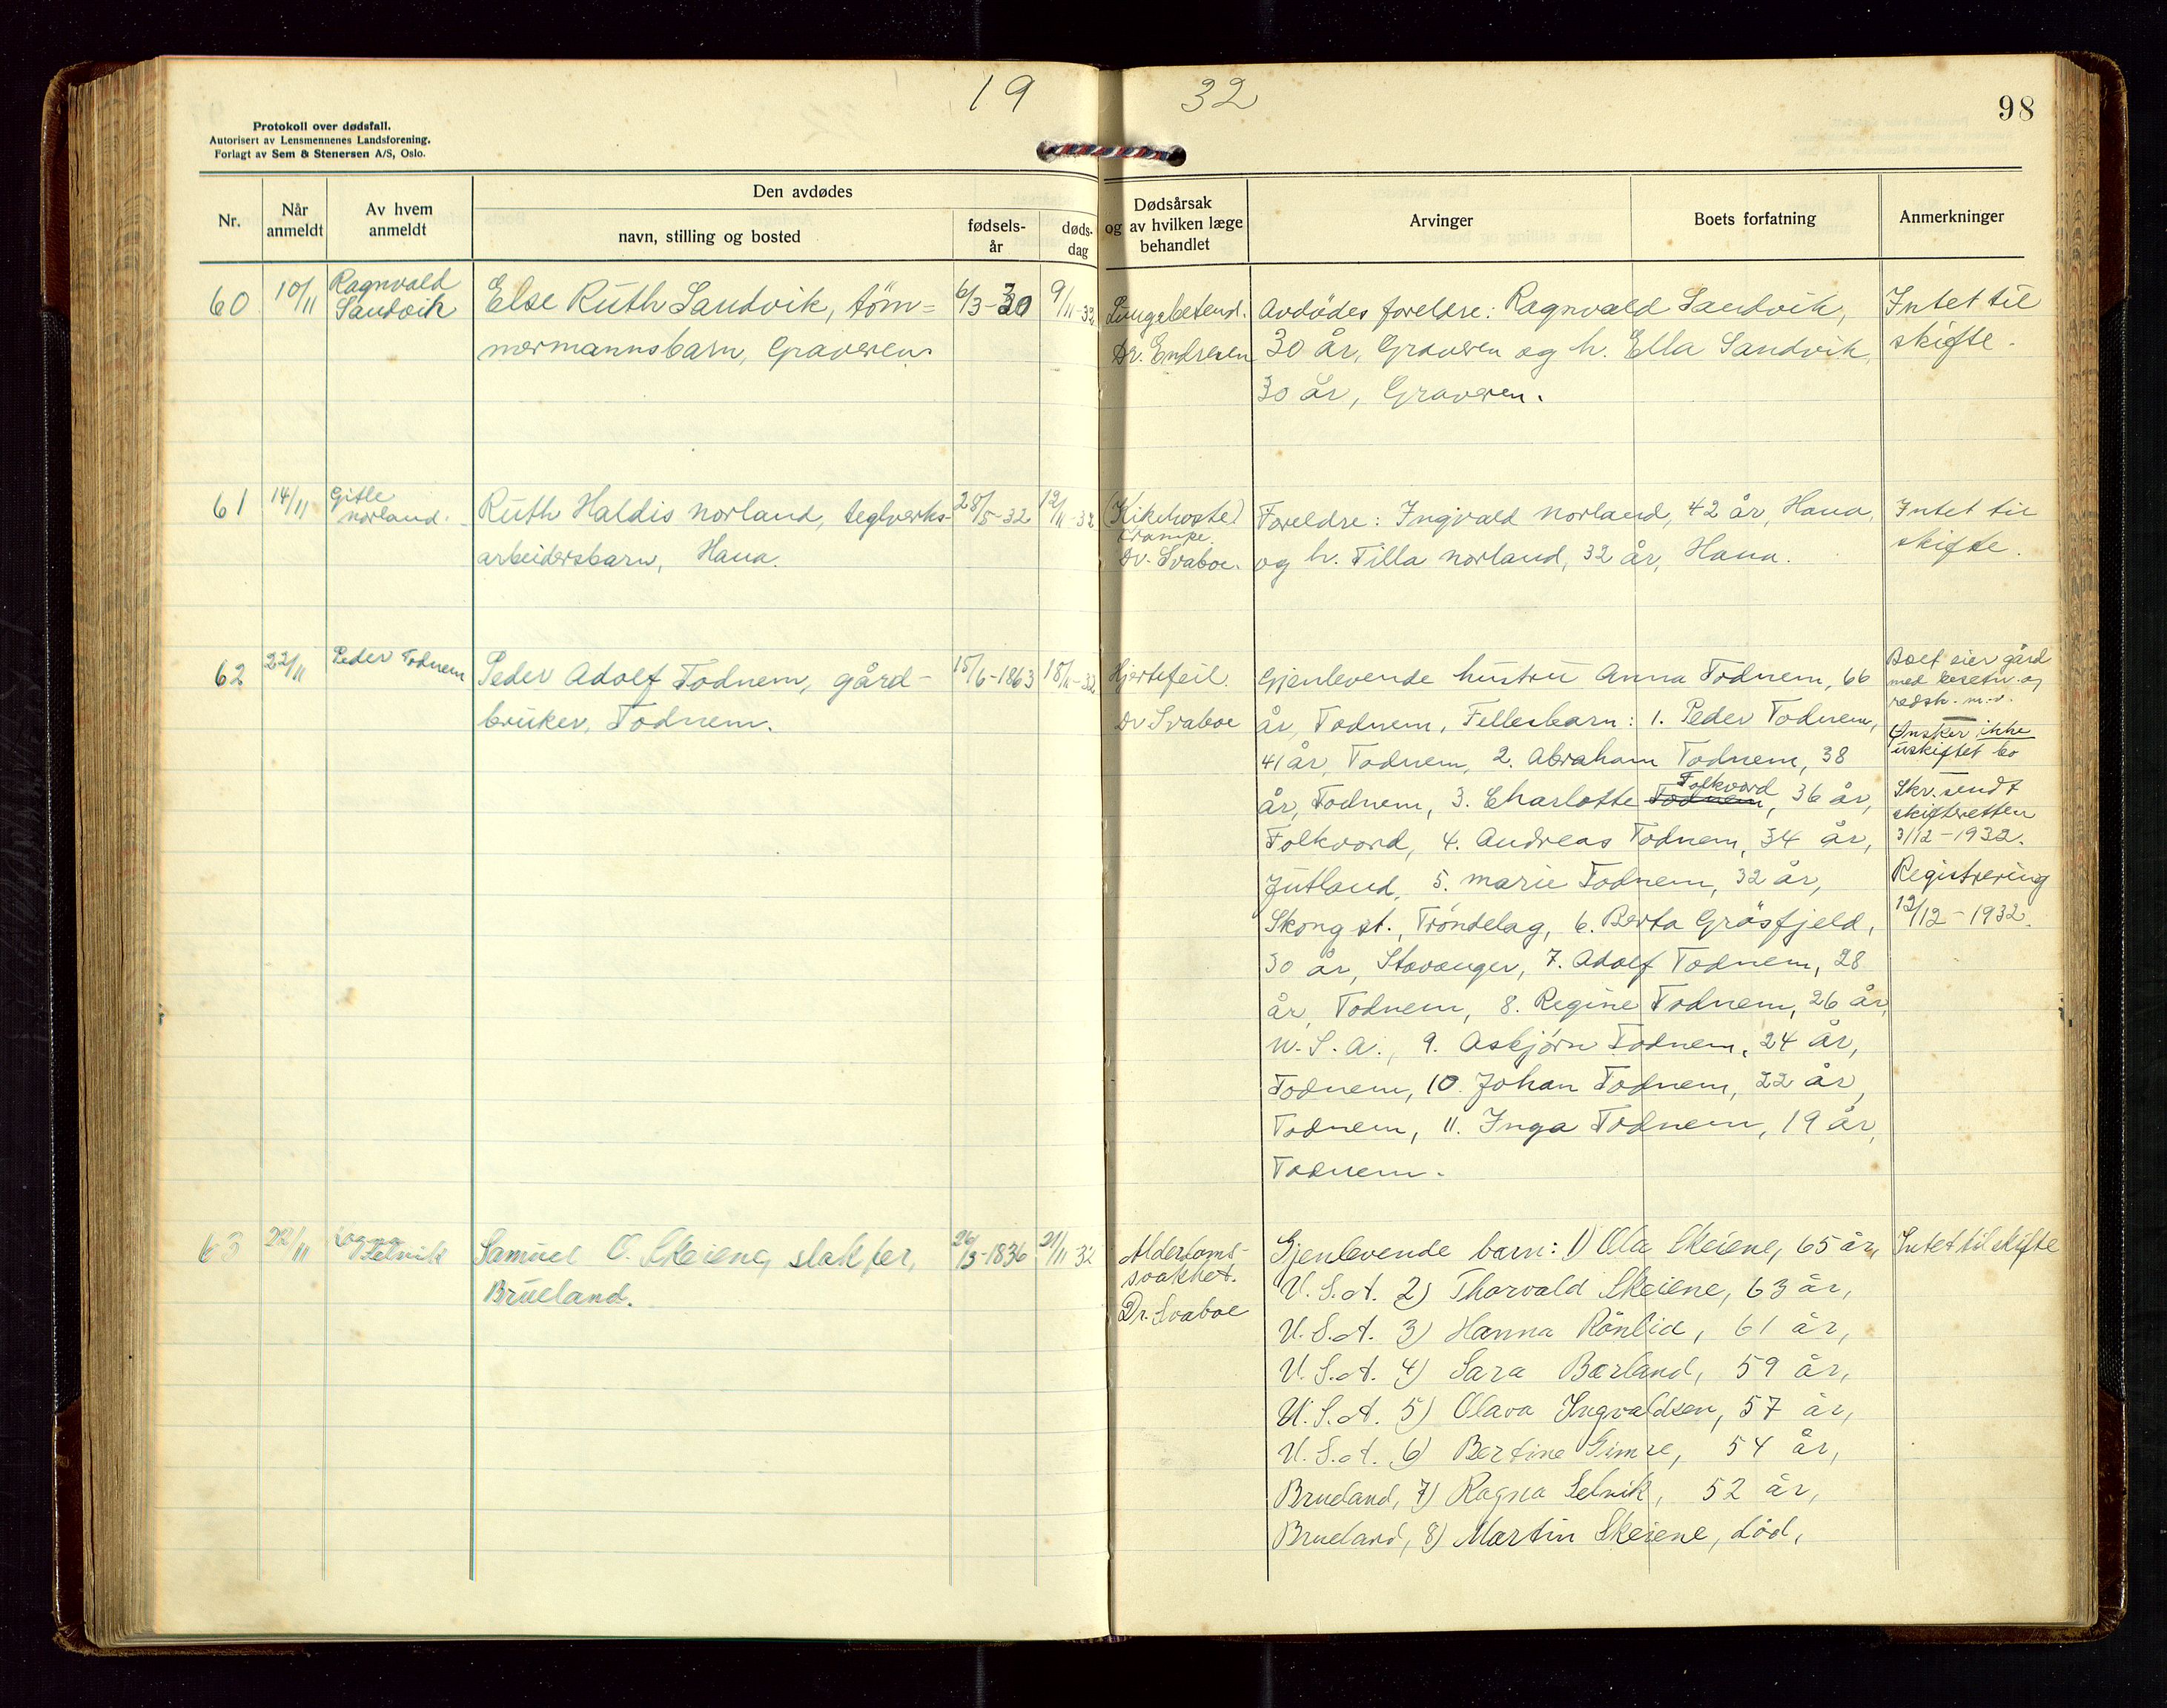 19 32
98
Protokoll over dødsfall.
Autorisert av Lensmennenes Landsforening.
Forlagt av Sem & Stenersen A/S, Oslo.
Nr.
Når
anmeldt
Av hvem
anmeldt
Den avdødes
navn, stilling og bosted
fødsels-
år
døds-
dag
Dødsårsak
og av hvilken læge
behandlet
Arvinger
Boets forfatning
Anmerkninger
60
10/11
Ragnvald
Sandvik
Else Ruth Sandvik, töm-
mermannsbarn, Graveren.
6/3-30
9/11-32
Lungebetend.
Dr. Endresen
Avdödes foreldre: Ragnvald Sandvik,
30 år, Graveren og h. Ella Sandvik,
30 år, Graveren.
Intet til
skifte.
61
14/11
Gitle
Norland.
Ruth Haldis Norland, teglverks-
arbeidersbarn, Hana.
28/5-32
12/11-32
(Kikhoste)
Krampe.
Dr. Svaboe.
Foreldre: Ingvald Norland, 42 år, Hana,
og h. Tilla Norland, 32 år, Hana.
Intet til
skifte.
62
22/11
Peder Todnem
Peder Adolf Todnem, gård-
bruker, Todnem.
15/6-1863
18/11-32
Hjertefeil
Dr Svaboe
Gjenlevende hustru Anna Todnem, 66
år, Todnem, Fellesbarn: 1. Peder Todnem,
41 år, Todnem, 2. Abraham Todnem, 38
Folkvord
år, Todnem, 3. Charlotte Todnem, 36 år,
Folkvord, 4. Andreas Todnem, 34 år,
Jutland, 5. Marie Todnem, 32 år,
Skong st., Tröndelag, 6. Berta Gråsfjeld,
30 år, Stavanger, 7. Adolf Todnem, 28
år, Todnem, 8. Regine Todnem, 26 år,
U.S.A., 9. Asbjörn Todnem, 24 år,
Todnem, 10. Johan Todnem, 22 år,
Todnem, 11. Inga Todnem, 19 år,
Todnem.
Boet eier gård
med besetn. og
redsk. m.v.
Ønsker ikke
uskiftet bo
Skr. sendt
skifteretten
3/12-1932.
Registrering
12/12-1932.
63
22/11
Ragna
Selvik
Samuel O. Skeiene, slakter,
Brueland.
26/3-1836
21/11-32
Alderdoms-
svakhet.
Dr. Svaboe
Gjenlevende barn: 1) Ola Skeiene, 65 år,
U.S.A. 2) Thorvald Skeiene, 63 år,
U.S.A. 3) Hanna Rönlid, 61 år,
U.S.A. 4) Sara Børland, 59 år,
U.S.A. 5) Olava Ingvaldsen, 57 år,
U.S.A. 6) Bertine Gimre, 54 år,
Brueland, 7) Ragna Selvik, 52 år,
Brueland, 8) Martin Skeiene, död,
Intet til skifte